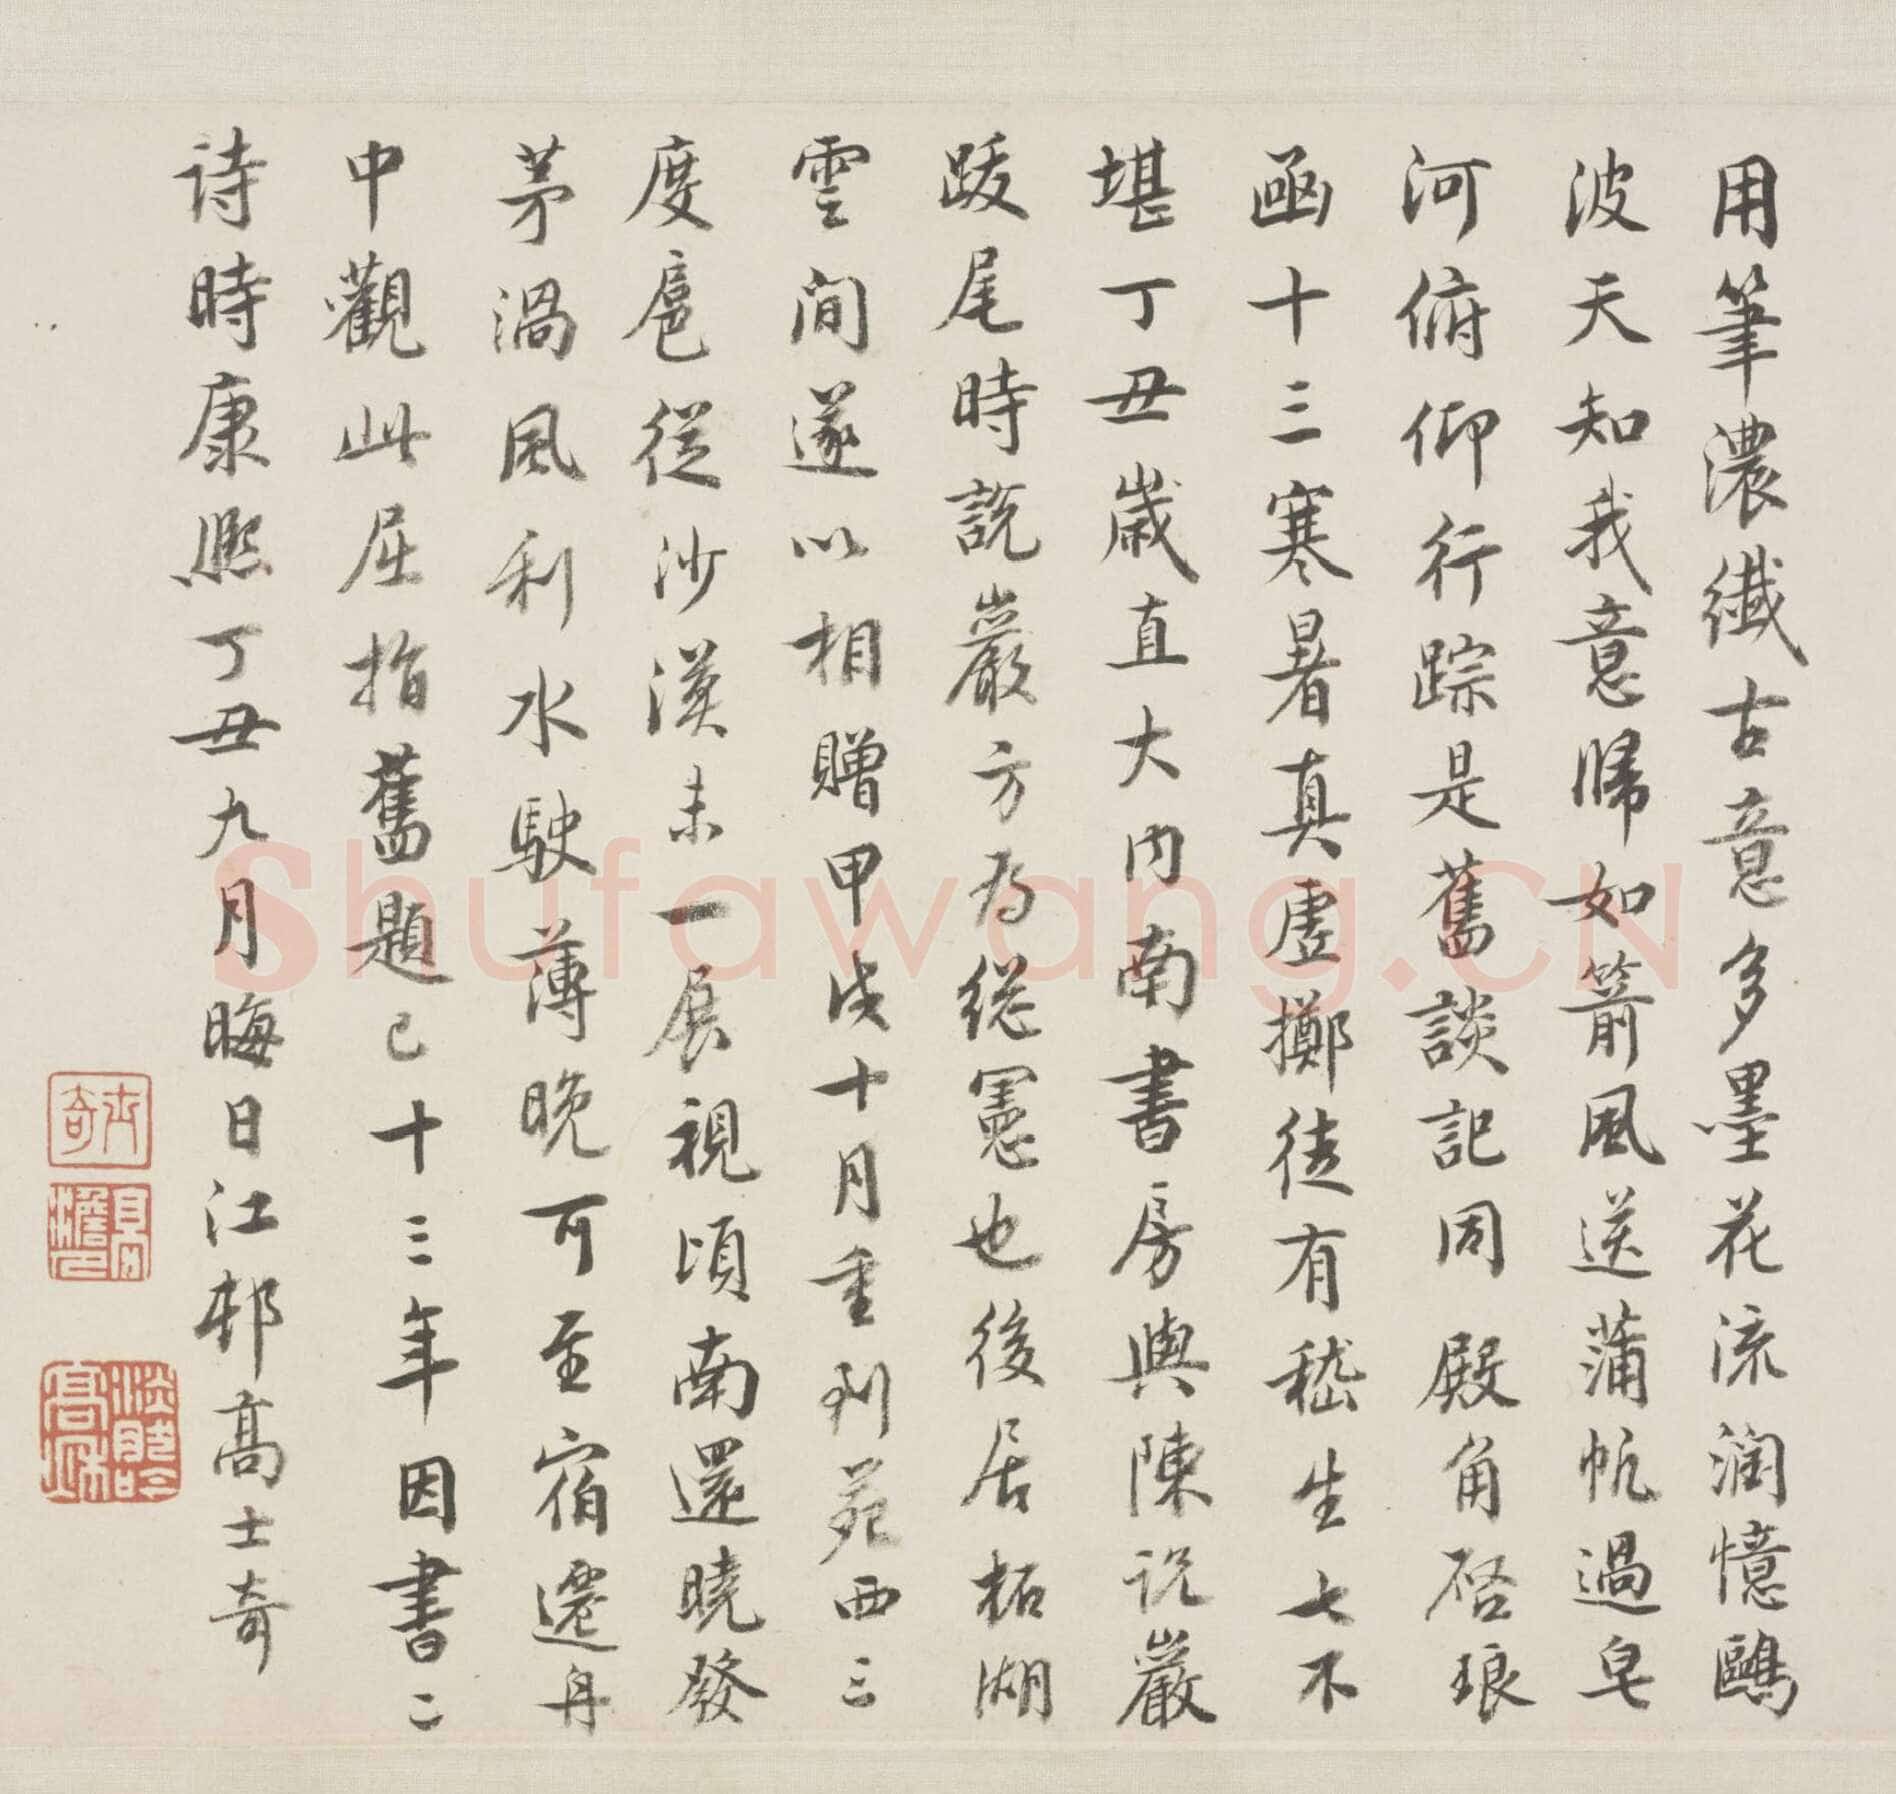 用筆濃纖古意多墨花流润憶鷗
波天知我意歸如箭風送蒲帆過皂
河俯仰行踪是舊談記周殿角啓琅
函十三寒暑真虚擲徒有嵇生七不
堪丁丑歲直大内南書房與陳说巖
跋尾時説巖方为総憲也後居柘湖
雲间遂以相贈甲戌十月重到苑西三
度扈従沙漠未一展視頃南還曉發
茅渦風利水駛薄晚可至宿遷舟
中觀此屈指舊題已十三年因書二
诗時康熙丁丑九月晦日江邨高士奇
士奇
Shufawang.CN